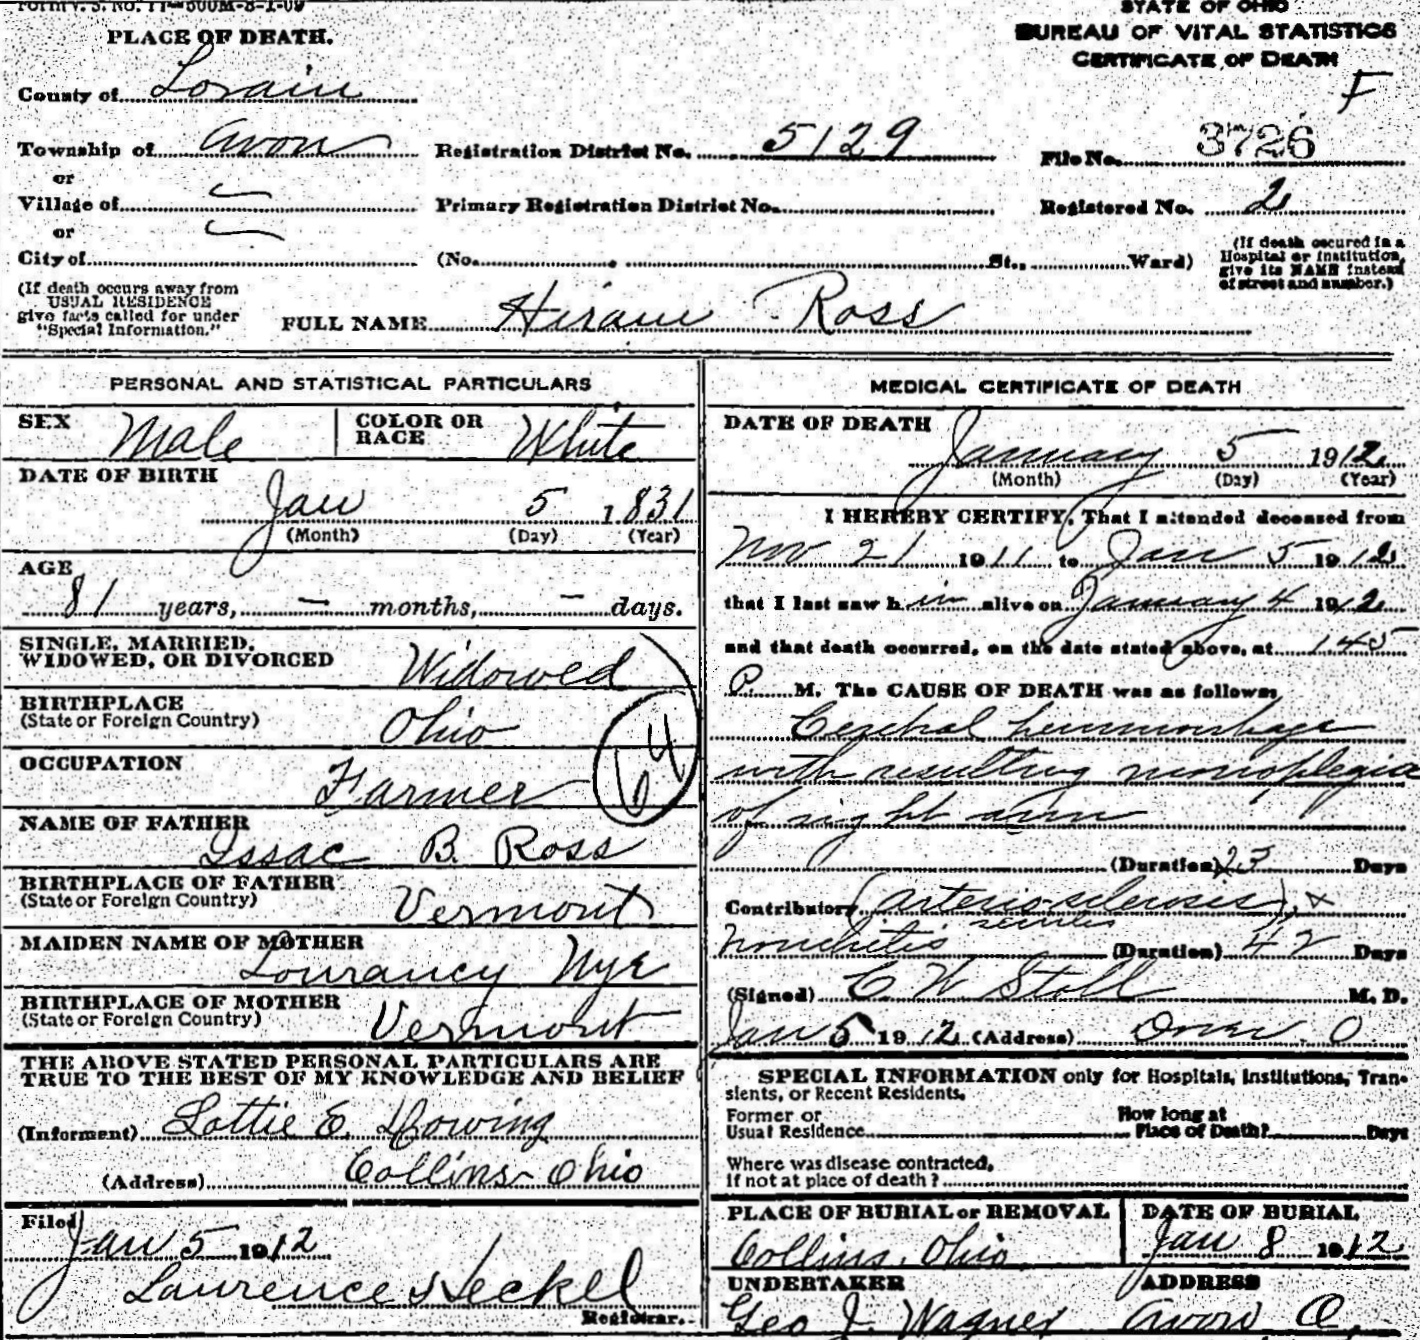 Form V. S. No. 11—500M-8-1-09
STATE OF OHIO
BUREAU OF VITAL STATISTICS
CERTIFICATE OF DEATH
PLACE OF DEATH.
F
County of Lorain
Township of Avon
Registration District No. 5129
File No. 3726
or
Village of
Primary Registration District No.
Registered No. 2
or
City of
(No. , St., Ward)
(If death occured in a
Hospital or institution,
give its NAME instead
of street and number.)
(If death occurs away from
USUAL RESIDENCE
give facts called for under
"Special Information."
FULL NAME Hiram Ross
PERSONAL AND STATISTICAL PARTICULARS
SEX Male
COLOR OR
RACE White
DATE OF BIRTH
Jan 5 1831
(Month) (Day) (Year)
AGE
81 years, — months, — days.
SINGLE, MARRIED,
WIDOWED, OR DIVORCED Widowed
BIRTHPLACE
(State or Foreign Country) Ohio
64
OCCUPATION
Farmer
NAME OF FATHER
Issac B. Ross
BIRTHPLACE OF FATHER
(State or Foreign Country) Vermont
MAIDEN NAME OF MOTHER
Lourancy Nye
BIRTHPLACE OF MOTHER
(State or Foreign Country) Vermont
THE ABOVE STATED PERSONAL PARTICULARS ARE
TRUE TO THE BEST OF MY KNOWLEDGE AND BELIEF
(Informent) Lottie E.
(Address) Collins Ohio
Filed
Jan 5 1912
Lawrence Heckel
Registrar.
MEDICAL CERTIFICATE OF DEATH
DATE OF DEATH
January 5 1912
(Month) (Day) (Year)
I HEREBY CERTIFY, That I attended deceased from
Nov 21 1911 to Jan 5 1912
that I last saw h im alive on January 4 1912
and that death occurred, on the date stated above, at 145
P. M. The CAUSE OF DEATH was as follows,
Cerebral hemmorhage
with resulting monoplegia
of right arm
(Duration) 23 Days
Contributory (arterio-sclerosis) &
senile
bronchitis (Duration) 42 Days
(Signed) C W Stoll M. D.
Jan 5 1912 (Address) O.
SPECIAL INFORMATION only for Hospitals, Institutions, Tran-
sients, or Recent Residents.
Former or
Usual Residence
How long at
Place of Death? Days
Where was disease contracted,
If not at place of death?
PLACE OF BURIAL or REMOVAL
Collins, Ohio
DATE OF BURIAL
Jan 8 1912
UNDERTAKER
Geo J. Wagner
ADDRESS
Avon, O.